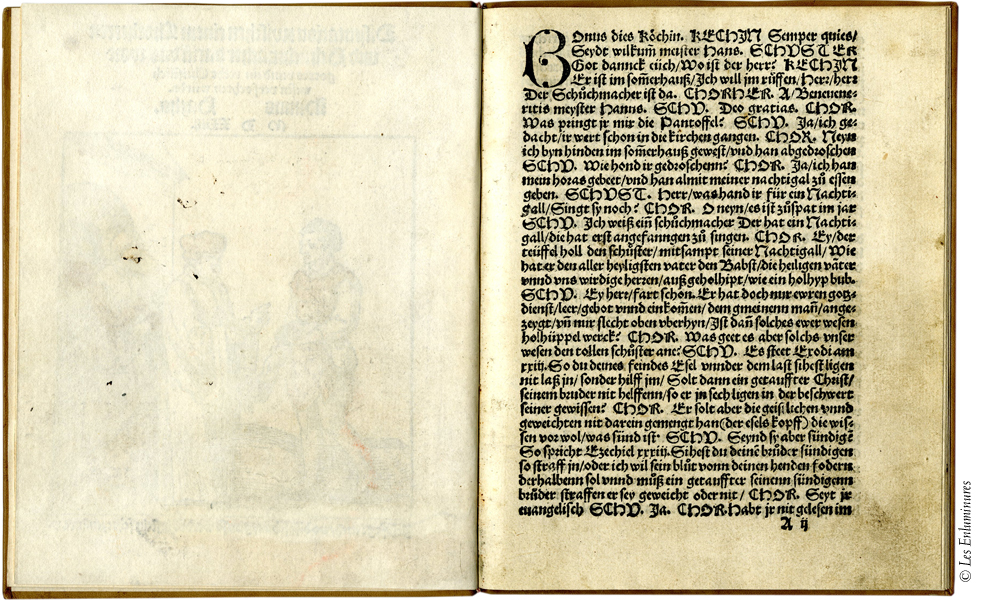 BOnus dies Kőchin. KECHIN Semper quies/
Seydt wilkum̃ meister Hans. SCHVSTER
Got dannck eüch/Wo ist der herr? KECHIN
Er ist im som̃erhauß/Ich will jm rüffen/Herr/herr
Der Schůchmacher ist da. CHORHER. A/Beneuene-
ritis meyster Hanns. SCHV. Deo gratias. CHOR.
Was pringt jr mir die Pantoffel? SCHV. Ja/ich ge-
dacht/ir wert schon in die kirchen gangen. CHOR. Neyn
ich byn hinden im som̃erhauß gewest/vnd han abgedroschen
SCHV. Wie hond ir gedroschenn? CHOR. Ja/ich han
mein horas gebeet/vnd han almit meiner nachtigal zů essen
geben. SCHVST. Herr/was hand ir für ein Nachti-
gall/Singt sy noch? CHOR. O neyn/es ist zůspat im jar
SCHV. Ich weiß ein̄ schůchmacher Der hat ein Nachti-
gall/die hat erst angefanngen zů singen. CHOR. Ey/der
teüffel holl den schůster/mitsampt seiner Nachtigall/Wie
hat er den aller heyligsten vater den Babst/die heiligen våter
vnnd vns wirdige herren/auß geholhipt/wie ein holhyp bub.
SCHV. Ey herr/fart schon. Er hat doch nur ewren gotz-
dienst/leer/gebot vnnd einkom̃en/dem gmeinenn man̄/ange-
zeygt/vn̄ mir slecht oben vberhyn/Ist dan̄ solches ewer wesen
holhüppel werck? CHOR. Was geet es aber solchs vnser
wesen den tollen schůster ane? SCHV. Es steet Exodi am
xxiij. So du deines feindes Esel vnnder dem last sihest ligen
nit laß jn/sonder hilff jm/Solt dann ein getauffter Christ/
seinem bruder nit helffenn/so er jn sech ligen in der beschwert
seiner gewissen? CHOR. Er solt aber die geistlichen vnnd
geweichten nit darein gemengt han(der esels kopff) die wis-
sen vor wol/was sünd ist. SCHV. Seynd sy aber sündigē
So spricht Ezechiel xxxiij. Sihest du deinē brůder sündigen
so straff jn/oder ich wil sein blůt vonn deinen henden fodern
derhalbenn sol vnnd můß ein getauffter seinenn sündigenn
brüder straffen er sey geweicht oder nit/CHOR. Seyt jr
euangelisch SCHV. Ja. CHOR. Habt jr nit gelesen im
A ij
© Les Enluminures